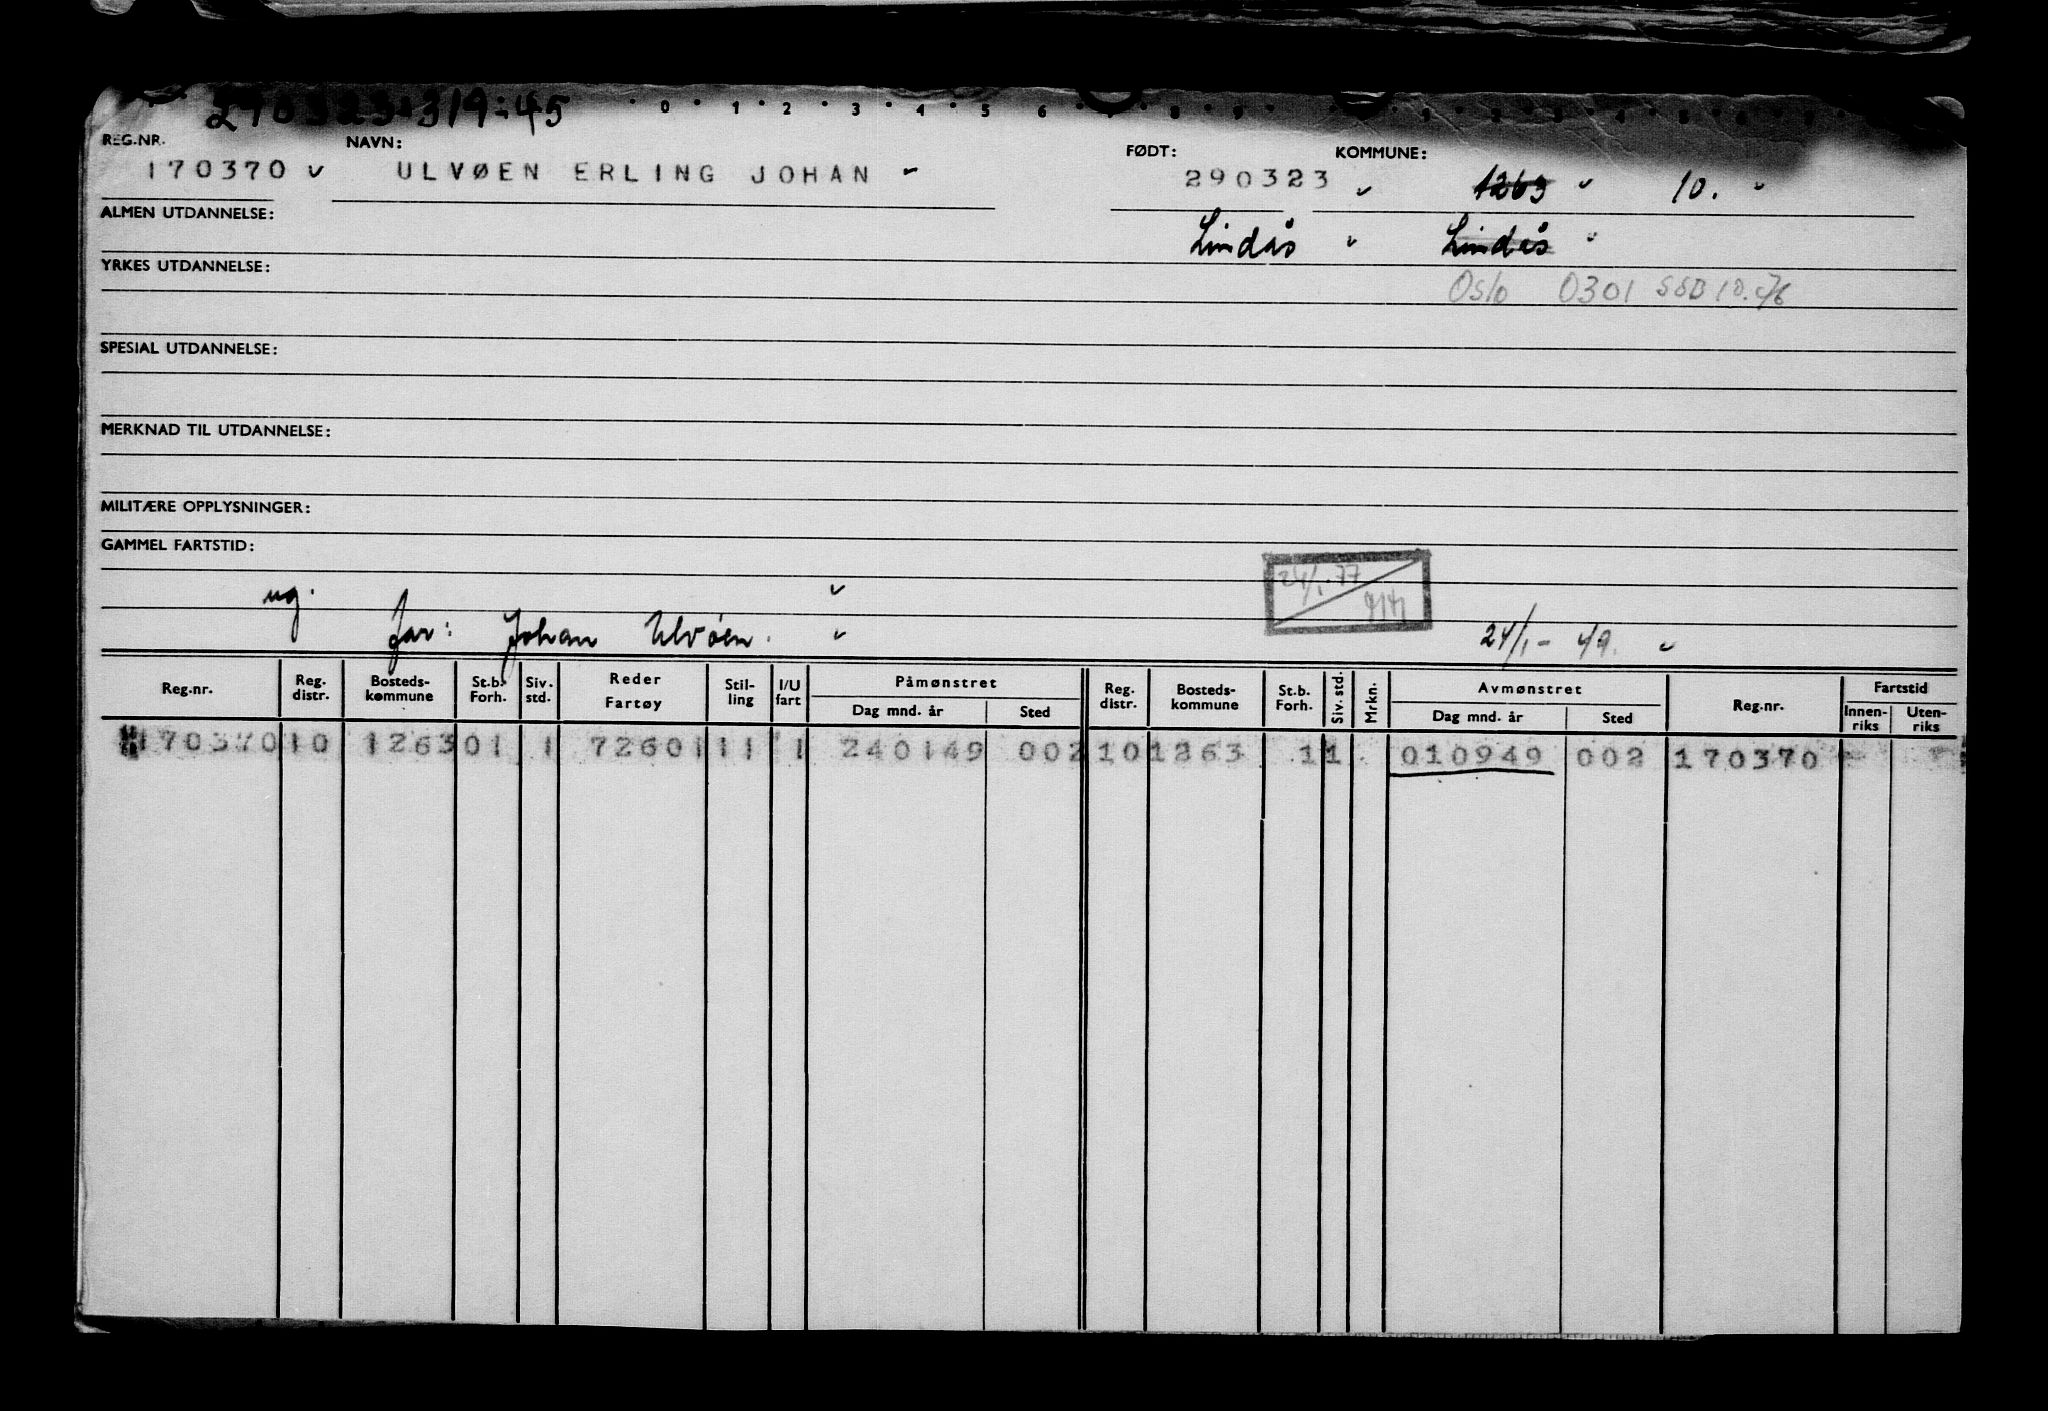 290323 319:45
0 1 2 3 4 5 6 7 8 9
REG.NR. NAVN: FØDT: KOMMUNE:
170370 ULVØEN ERLING JOHAN 290323 1263 10.
ALMEN UTDANNELSE:
Lindås Lindås
YRKES UTDANNELSE:
Oslo 0301 SSB 10.
SPESIAL UTDANNELSE:
MERKNAD TIL UTDANNELSE:
MILITÆRE OPPLYSNINGER:
GAMMEL FARTSTID:
24/1.77
ug.
far: Johan Ulvøen. 24/1-49.
Reg.nr. Reg. distr. Bosteds-kommune St.b. Forh. Siv. std. Reder Fartøy Stil-ling I/U fart Påmønstret Dag mnd. år Sted Reg. distr. Bosteds-kommune St.b. Forh. Siv. std. Mrkn. Avmønstret Dag mnd. år Sted Reg.nr. Fartstid Innen-riks Uten-riks
170370 10 1263 01 1 72601 11 1 240149 002 10 1263 1 1 010949 002 170370